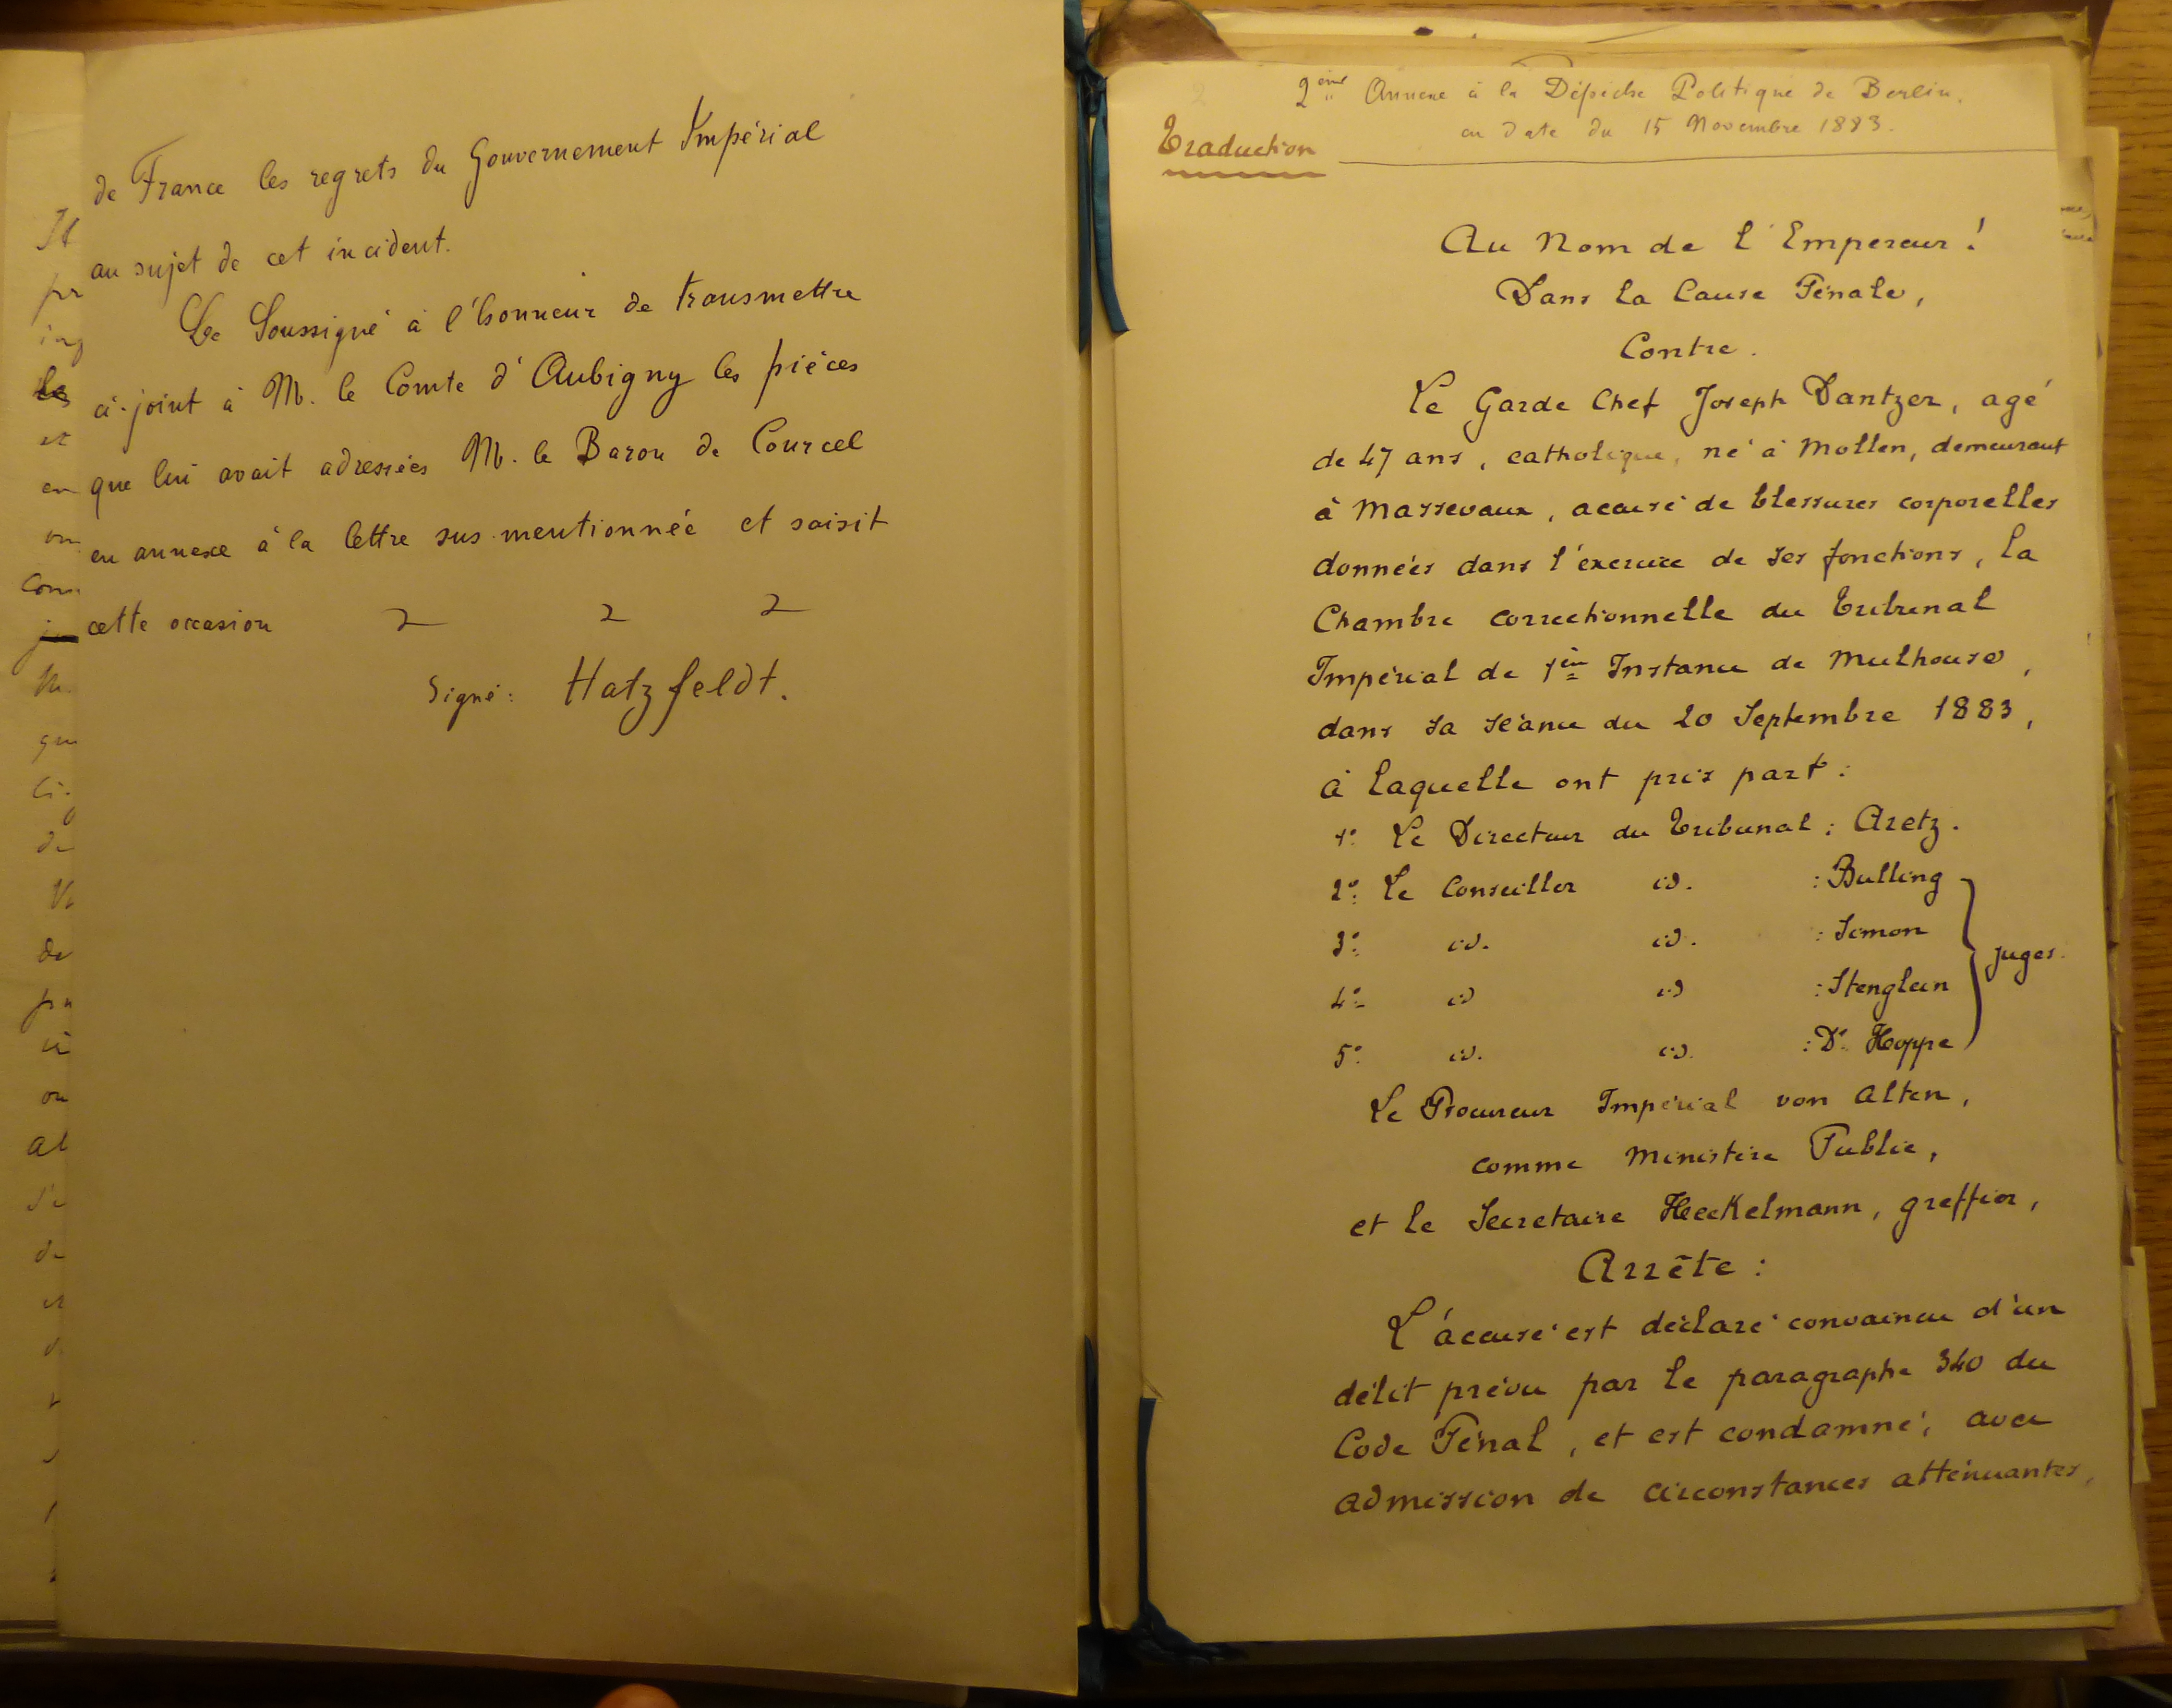 de France les regrets du Gouvernement Impérial
au sujet de cet incident.
Le Soussigné à l'honneur de transmettre
ci-joint à M. le Comte d'Aubigny les pièces
que lui avait adressées M. le Baron de Courcel
en annexe à la lettre sus-mentionnée et saisit
cette occasion
Signé: Hatzfeldt.
2ème Annexe à la Dépêche Politique de Berlin.
en date du 15 Novembre 1883.
Traduction
Au Nom de l'Empereur!
Dans la Cause Pénale,
Contre.
Le Garde Chef Joseph Dantzer, agé
de 47 ans, catholique, né à Mollen, demeurant
à Massevaux, accusé de blessures corporelles
données dans l'exercice de ses fonctions, la
Chambre correctionnelle du Tribunal
Impérial de 1ère Instance de Mulhouse,
dans sa séance du 20 Septembre 1883,
à laquelle ont pris part:
1º Le Directeur du Tribunal: Aretz.
2º Le Conseiller id. : Bulling
3º id. id. : Simon
juges.
4º id id : Stenglein
5º id. id. : Dr. Hoppe
Le Procureur Impérial von Alten,
comme Ministère Public,
et le Secretaire Heckelmann, greffier,
Arrête:
L'accusé est déclaré convaincu d'un
délit prévu par le paragraphe 340 du
Code Pénal, et est condamné, avec
admission de circonstances atténuantes,